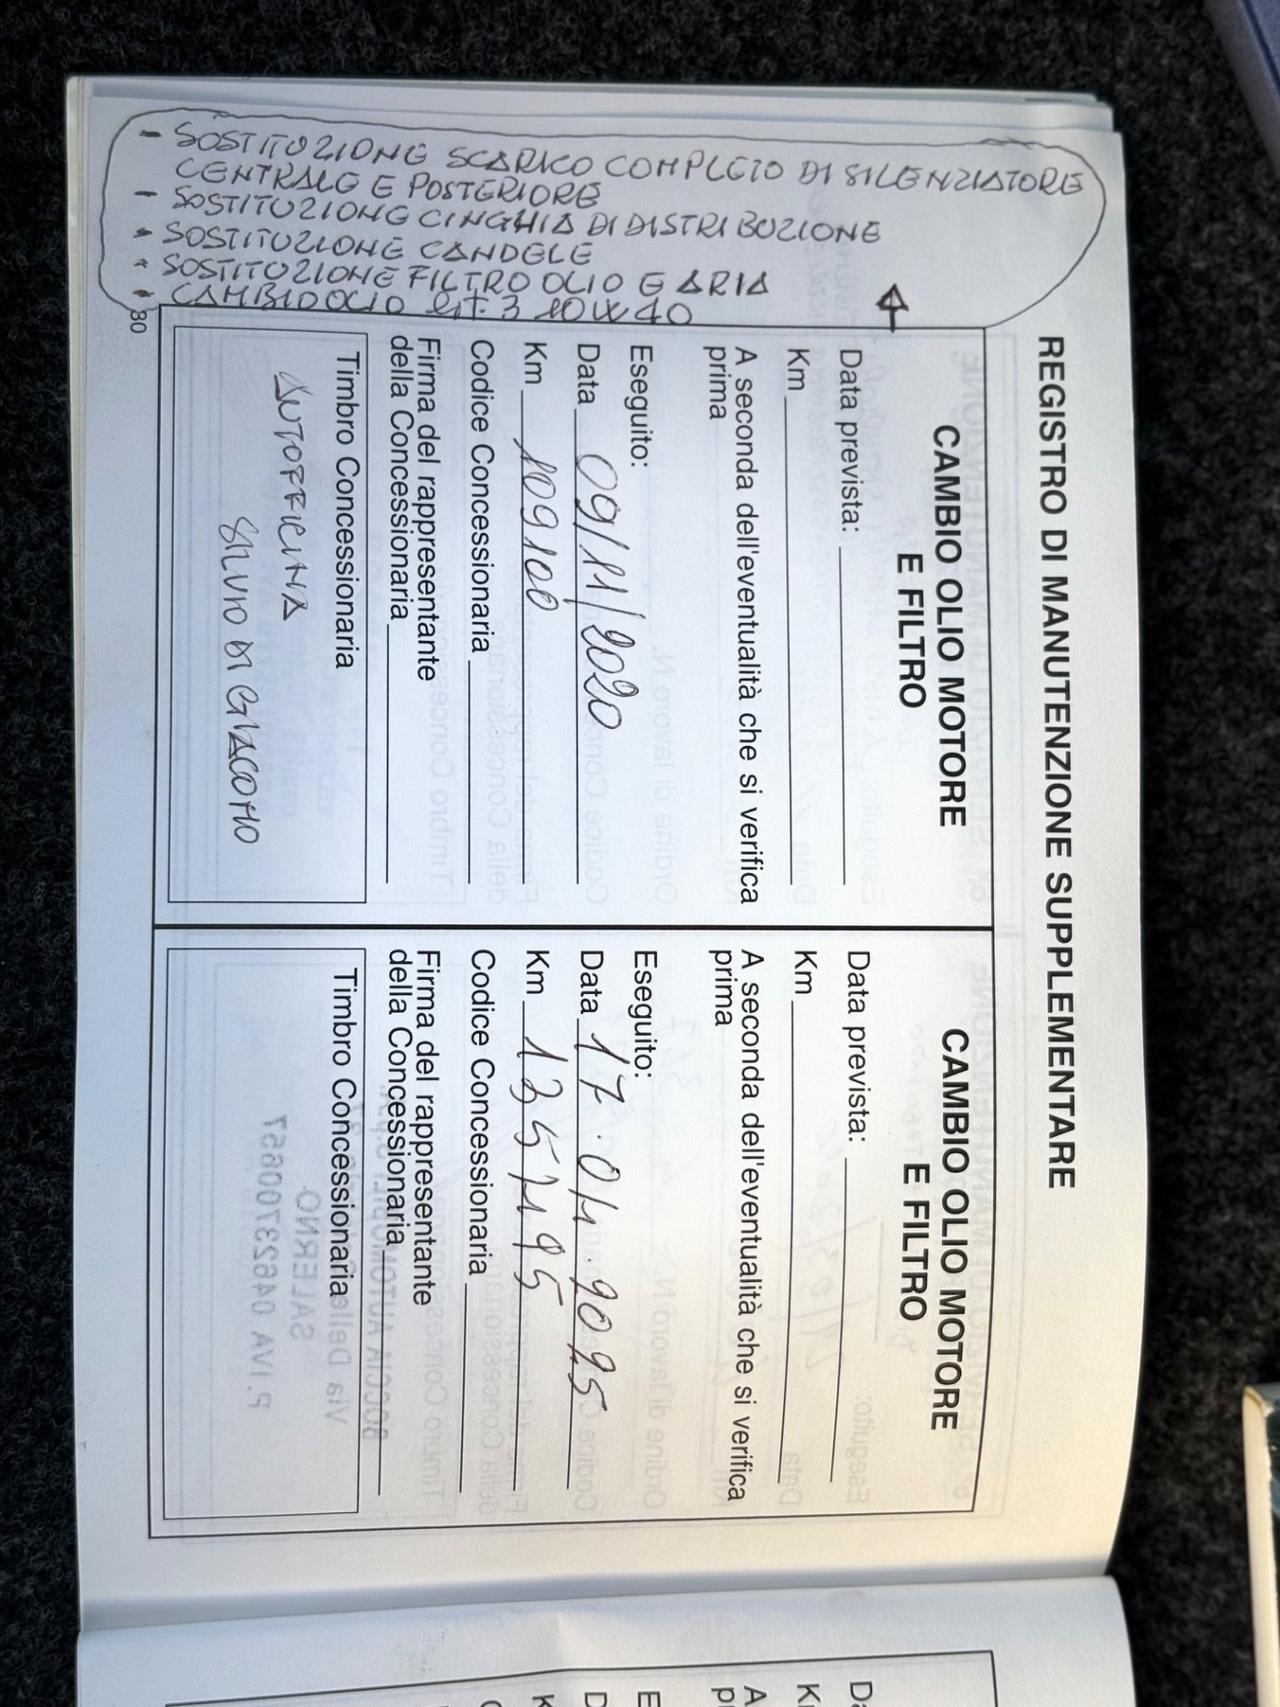 - SOSTITUZIONE SCARICO COMPLETO DI SILENZIATORE
CENTRALE E POSTERIORE
- SOSTITUZIONE CINGHIA DI DISTRIBUZIONE
- SOSTITUZIONE CANDELE
- SOSTITUZIONE FILTRO OLIO E ARIA
- CAMBIO OLIO lit. 3 10W40
REGISTRO DI MANUTENZIONE SUPPLEMENTARE
CAMBIO OLIO MOTORE
E FILTRO
Data prevista:
Km
A seconda dell'eventualità che si verifica
prima
Eseguito:
Data 09/11/2020
Km 109100
Codice Concessionaria
Firma del rappresentante
della Concessionaria
Timbro Concessionaria
AUTOFFICINA
SILVIO DI GIACOMO
CAMBIO OLIO MOTORE
E FILTRO
Data prevista:
Km
A seconda dell'eventualità che si verifica
prima
Eseguito:
Data 17.04.2025
Km
Codice Concessionaria
Firma del rappresentante
della Concessionaria
Timbro Concessionaria
30